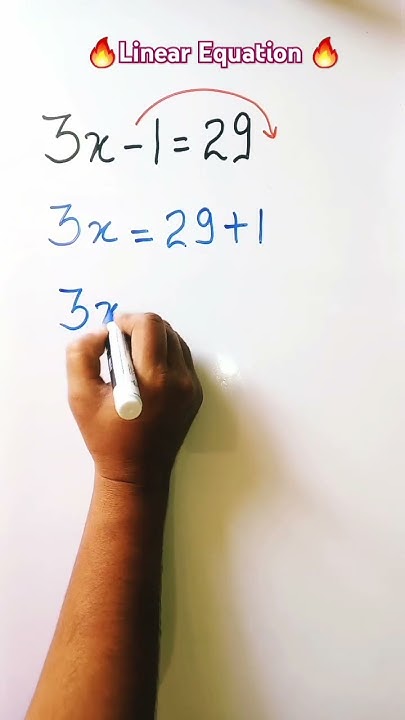 🔥Linear Equation 🔥
3x-1=29
3x=29+1
3x